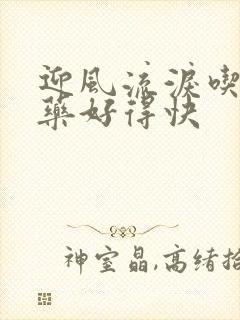 迎風流淚喫
藥好得快
神室晶,高緒拾